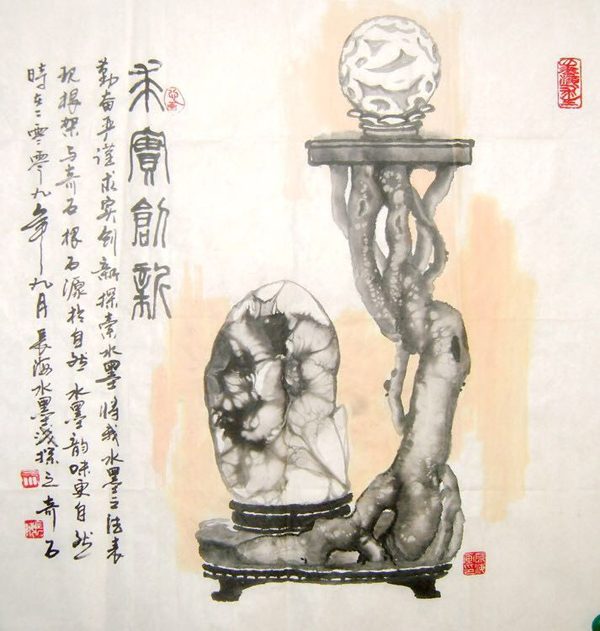 求實創新
勤奋严谨求实创新探索水墨将我水墨之法表
现根架与奇石根石源於自然水墨韵味更自然
時在二零零九年九月長海水墨浅探之奇石